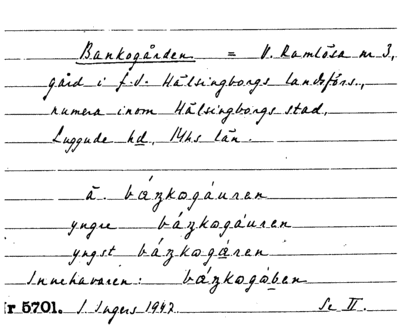 Bankogården = V. Ramlösa nr 3,
gård i f.d. Hälsingborgs landsförs.,
numera inom Hälsingborgs stad,
Luggude hd, Mhs län.
ä. báŋkogáuren
yngre báŋkogáuren
yngst báŋkogáren
Innehavaren: báŋkogåben
Nr 5701. I. Ingers 1947. Se II.